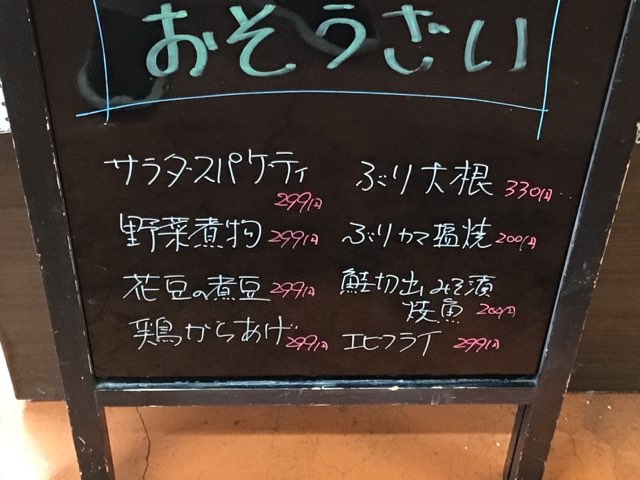 おそうざい
サラダスパゲティ
299円
野菜煮物 299円
花豆の煮豆 299円
鶏からあげ 299円
ぶり大根 330円
ぶりカマ塩焼 200円
鮭切出みそ漬
焼魚 200円
エビフライ 299円